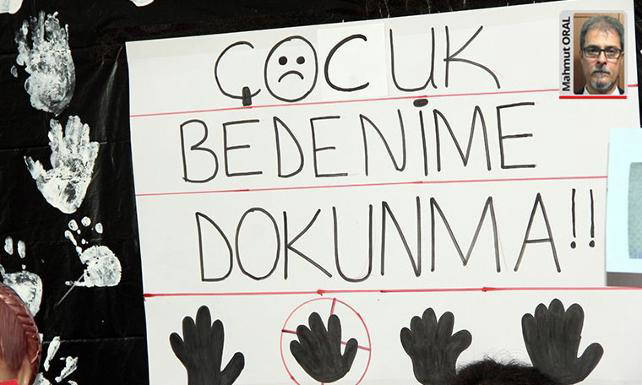 ÇOCUK
BEDENİME
DOKUNMA!!
Mahmut ORAL